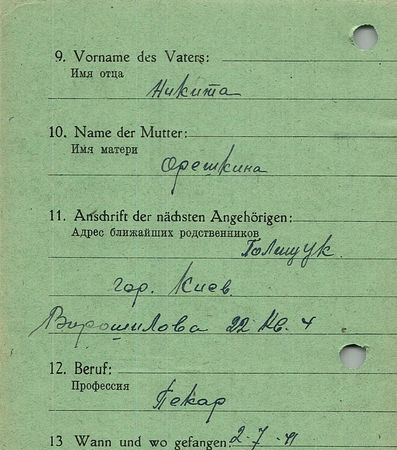 9. Vorname des Vaters:
Имя отца
Никита
10. Name der Mutter:
Имя матери
Орешкина
11. Anschrift der nächsten Angehörigen:
Адрес ближайших родственников
Полищук.
гор. Киев.
Ворошилова 22 кв. 4
12. Beruf:
Профессия
Пекар
13 Wann und wo gefangen: 2-7-41